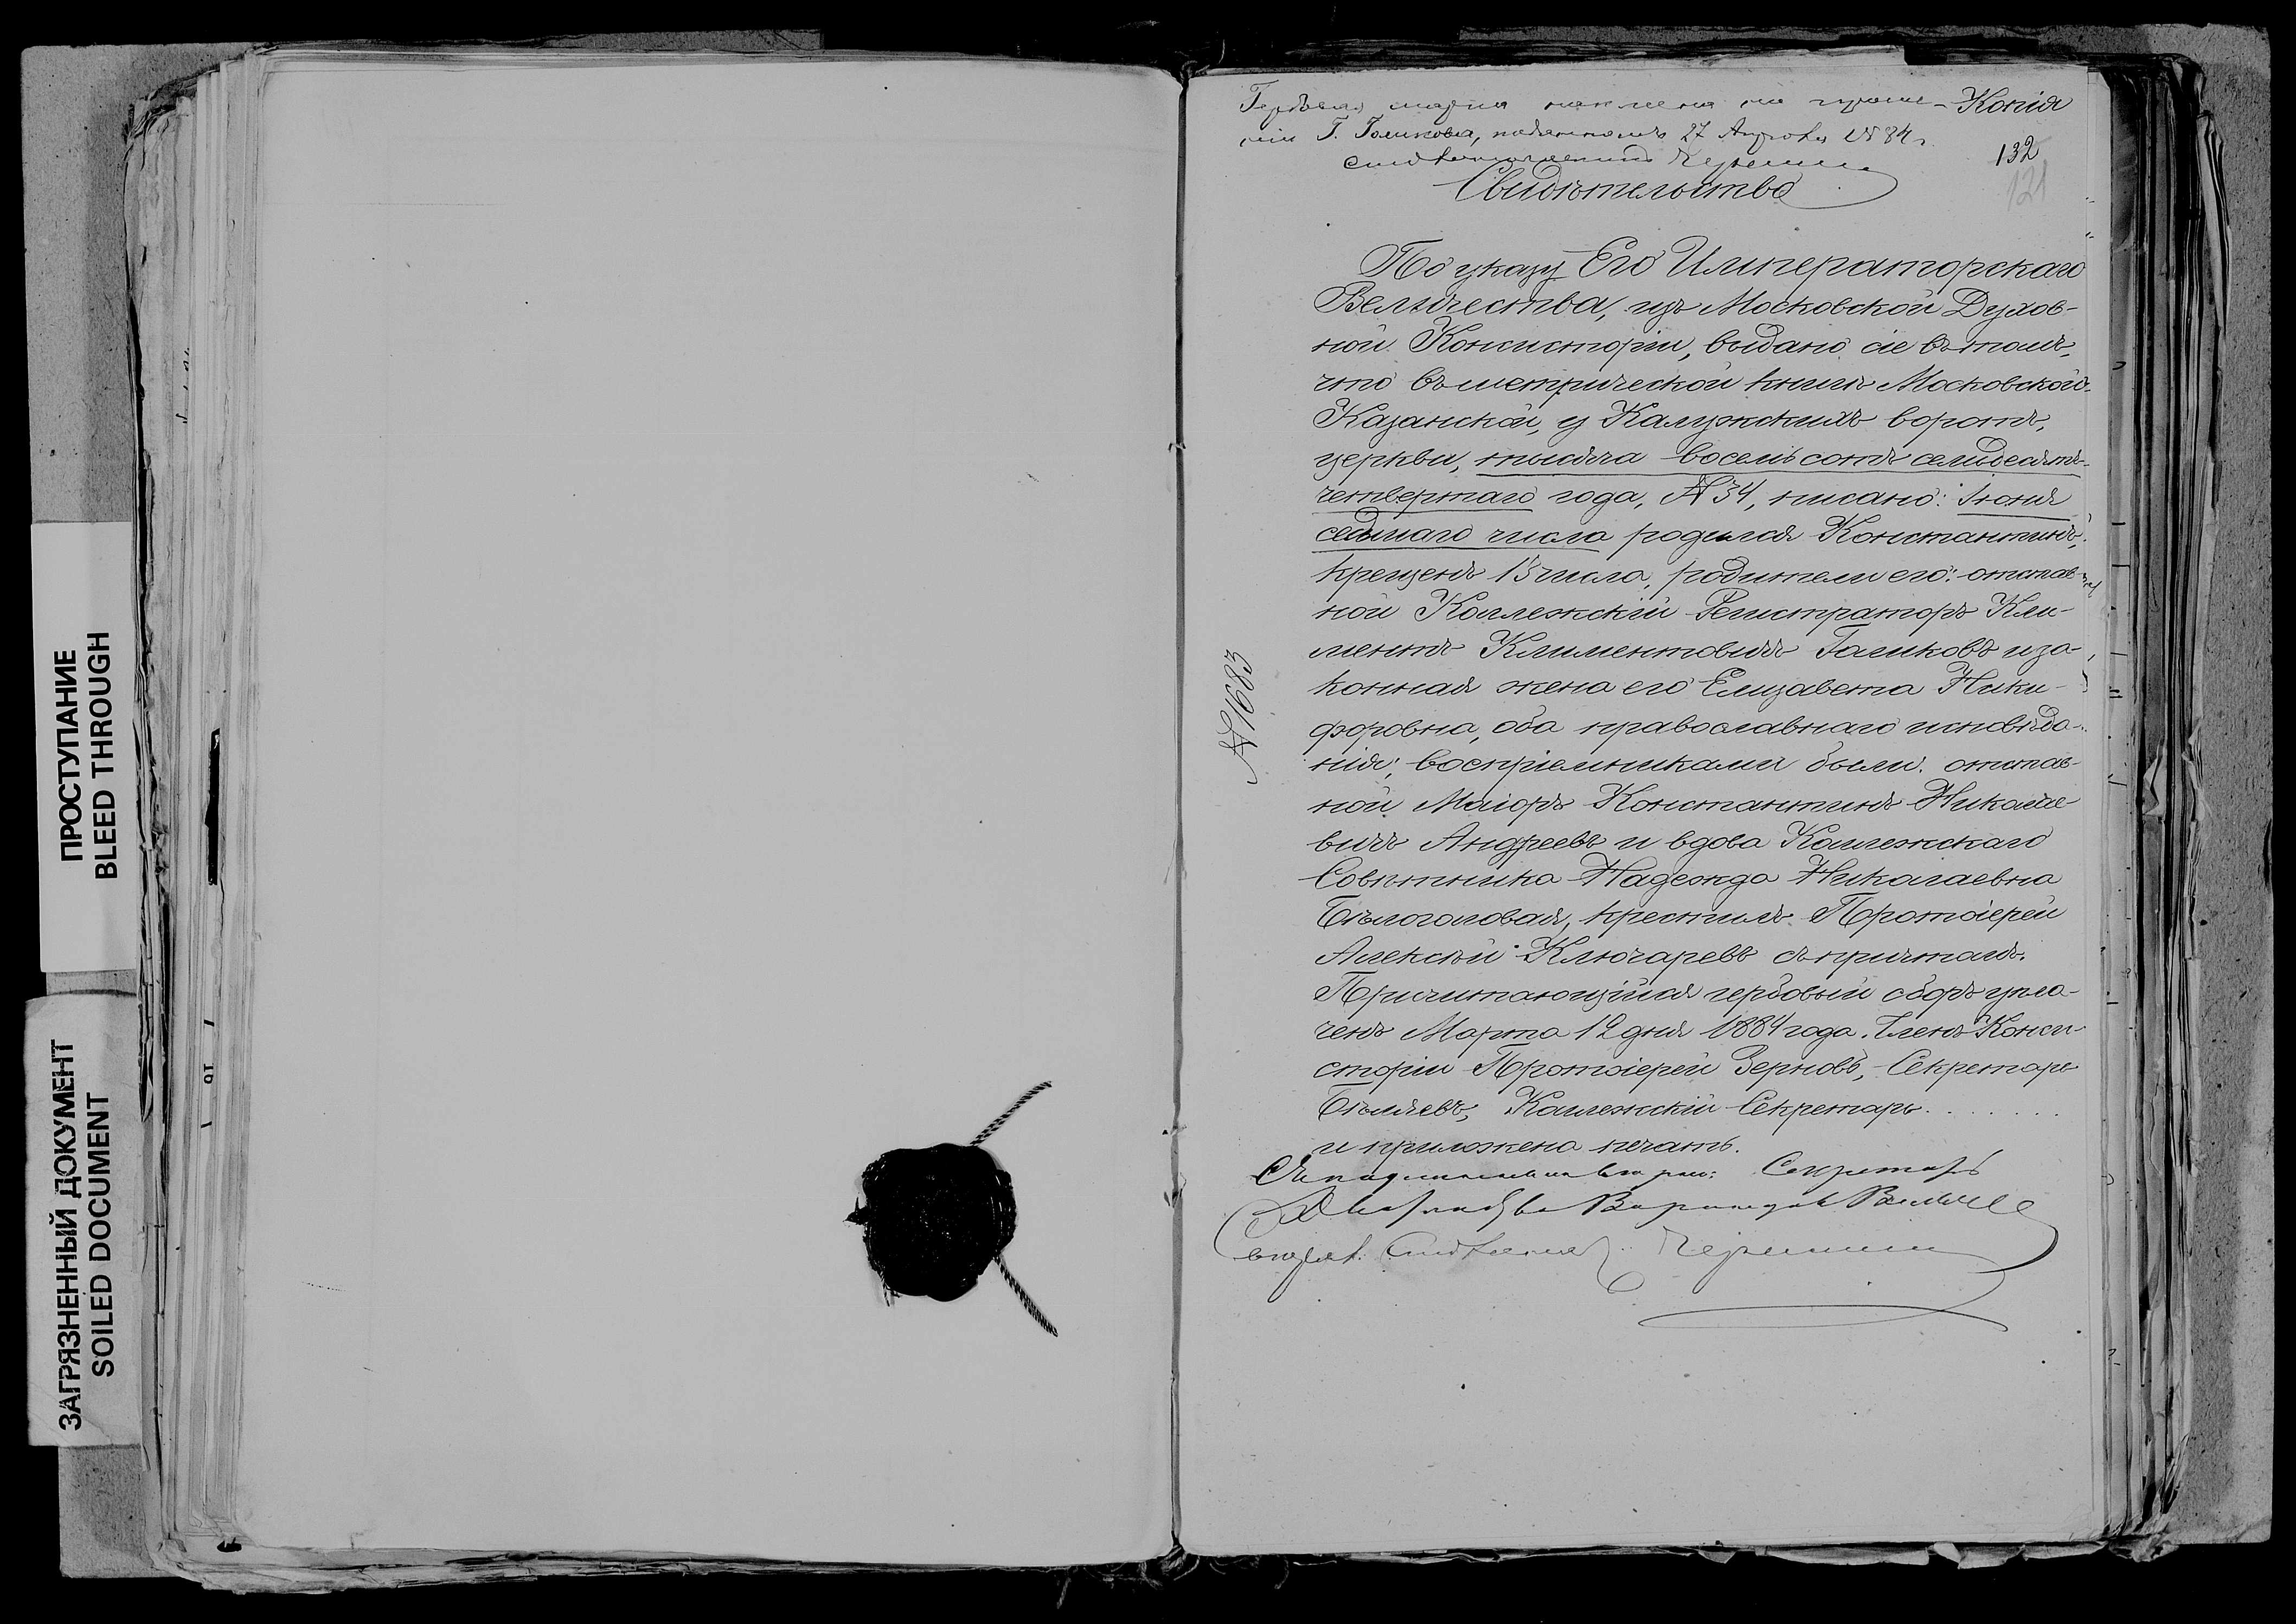 ПРОСТУПАНИЕ
BLEED THROUGH
ЗАГРЯЗНЕННЫЙ ДОКУМЕНТ
SOILED DOCUMENT
Гербовая марка наклеена на проше-
нiи Г. Голикова, 27 84 г.
Копiя
132
121
Свидѣтельство
По указу Его Императорскаго
Величества, изъ Московской Духов-
ной Консисторiи, выдано сiе въ томъ,
что въ метрической книгѣ Московской
Казанской, у Калужскихъ воротъ,
церкви, тысяча восемьсотъ семьдесятъ
четвертаго года, № 34, писано: Iюня
седьмаго числа родился Константинъ,
крещенъ 13 числа, родители его: отстав-
ной Коллежскiй Регистраторъ Кли-
ментъ Климентовичъ Голиковъ и за-
конная жена его Елизавета Ники-
форовна, оба православнаго исповѣда-
нiя; воспрiемниками были: отстав-
ной Маiоръ Константинъ Николае-
вичъ Андреевъ и вдова Коллежскаго
Совѣтника Надежда Николаевна
Бѣлоголовая, крестилъ Протоiерей
Алексѣй Ключаревъ съ причтомъ.
Причитающiйся гербовый сборъ упла-
ченъ Марта 12 дня 1884 года. Членъ Конси-
сторiи Протоiерей Зерновъ, Секретарь
Бѣляевъ, Коллежскiй Секретарь . . . . . . .
и приложена печать.
Съ подлиннымъ вѣрно: Секретарь
№ 1683